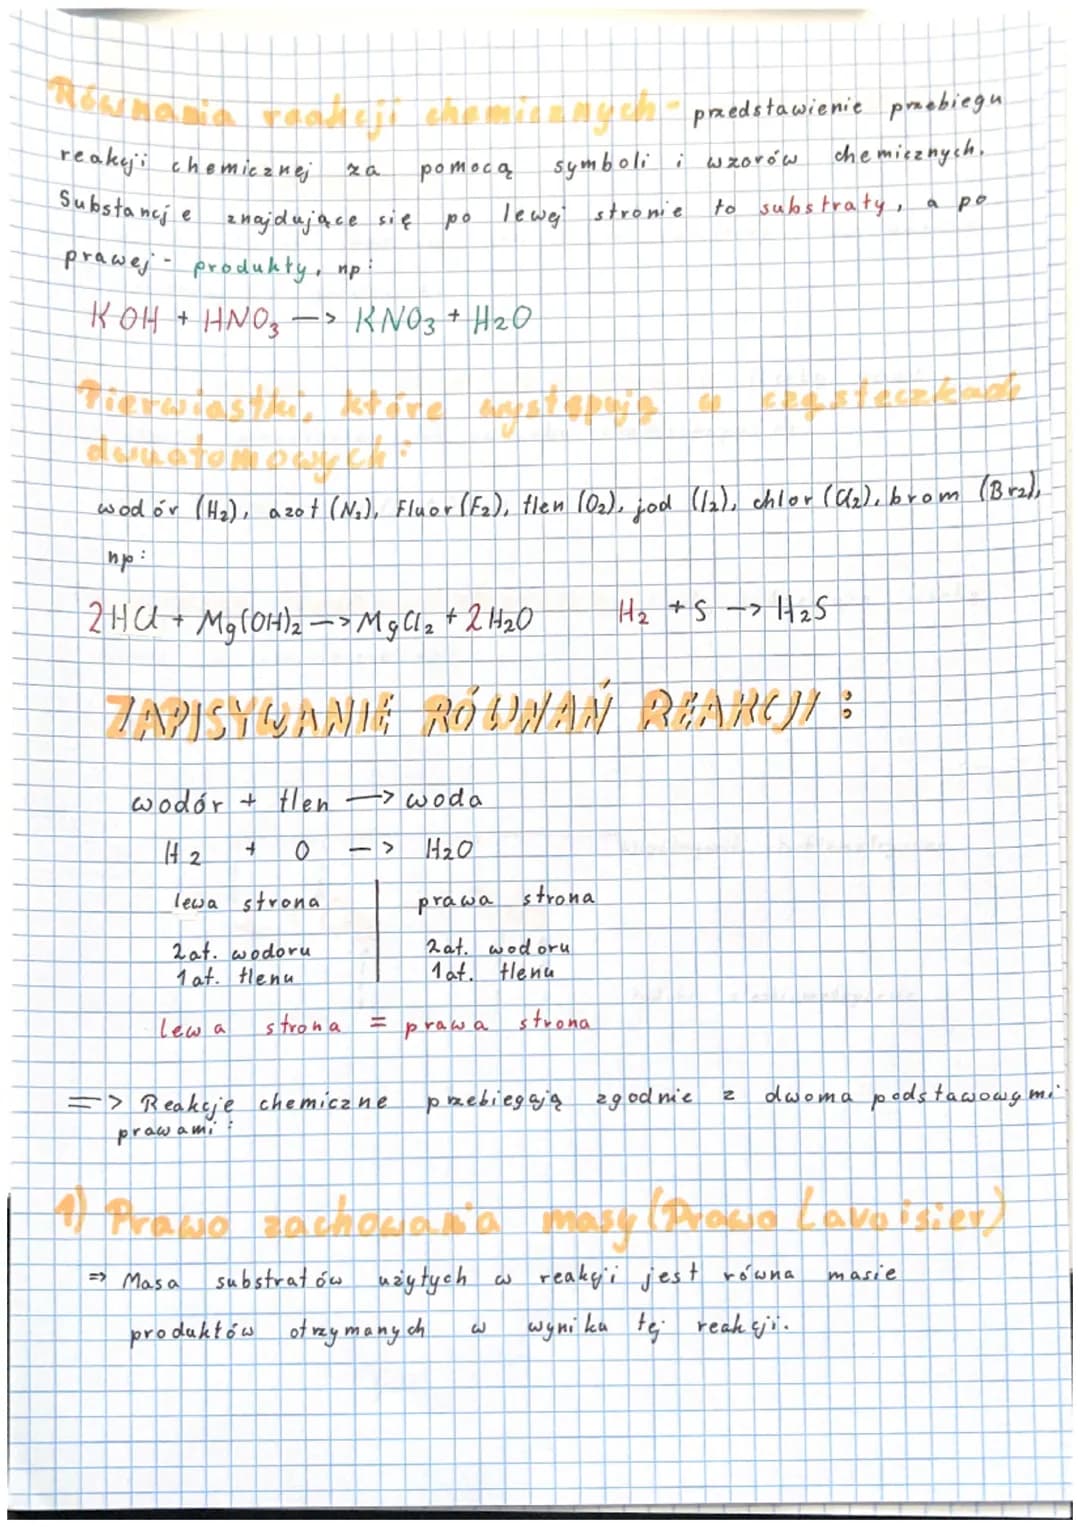 Równania reakcji chemicznych - przedstawienie przebiegu
reakcji chemicznej za pomocą symboli i wzorów chemicznych.
Substancje znajdujące się po lewej stronie to substraty, a po
prawej - produkty, np:
KOH + HNO₃ —> KNO₃ + H₂O
Pierwiastki, które występują w cząsteczkach
dwuatomowych:
wodór (H₂), azot (N₂), Fluor (F₂), tlen (O₂), jod (I₂), chlor (Cl₂), brom (Br₂),
np:
2HCl + Mg(OH)₂ —> MgCl₂ + 2H₂O H₂ + S —> H₂S
ZAPISYWANIE RÓWNAŃ REAKCJI:
wodór + tlen —> woda
H₂ + O —> H₂O
lewa strona | prawa strona
2at. wodoru | 2at. wodoru
1at. tlenu | 1at. tlenu
lewa strona = prawa strona
=> Reakcje chemiczne przebiegają zgodnie z dwoma podstawowymi
prawami:
1) Prawo zachowania masy (Prawo Lavoisier)
=> Masa substratów użytych w reakcji jest równa masie
produktów otrzymanych w wyniku tej reakcji.